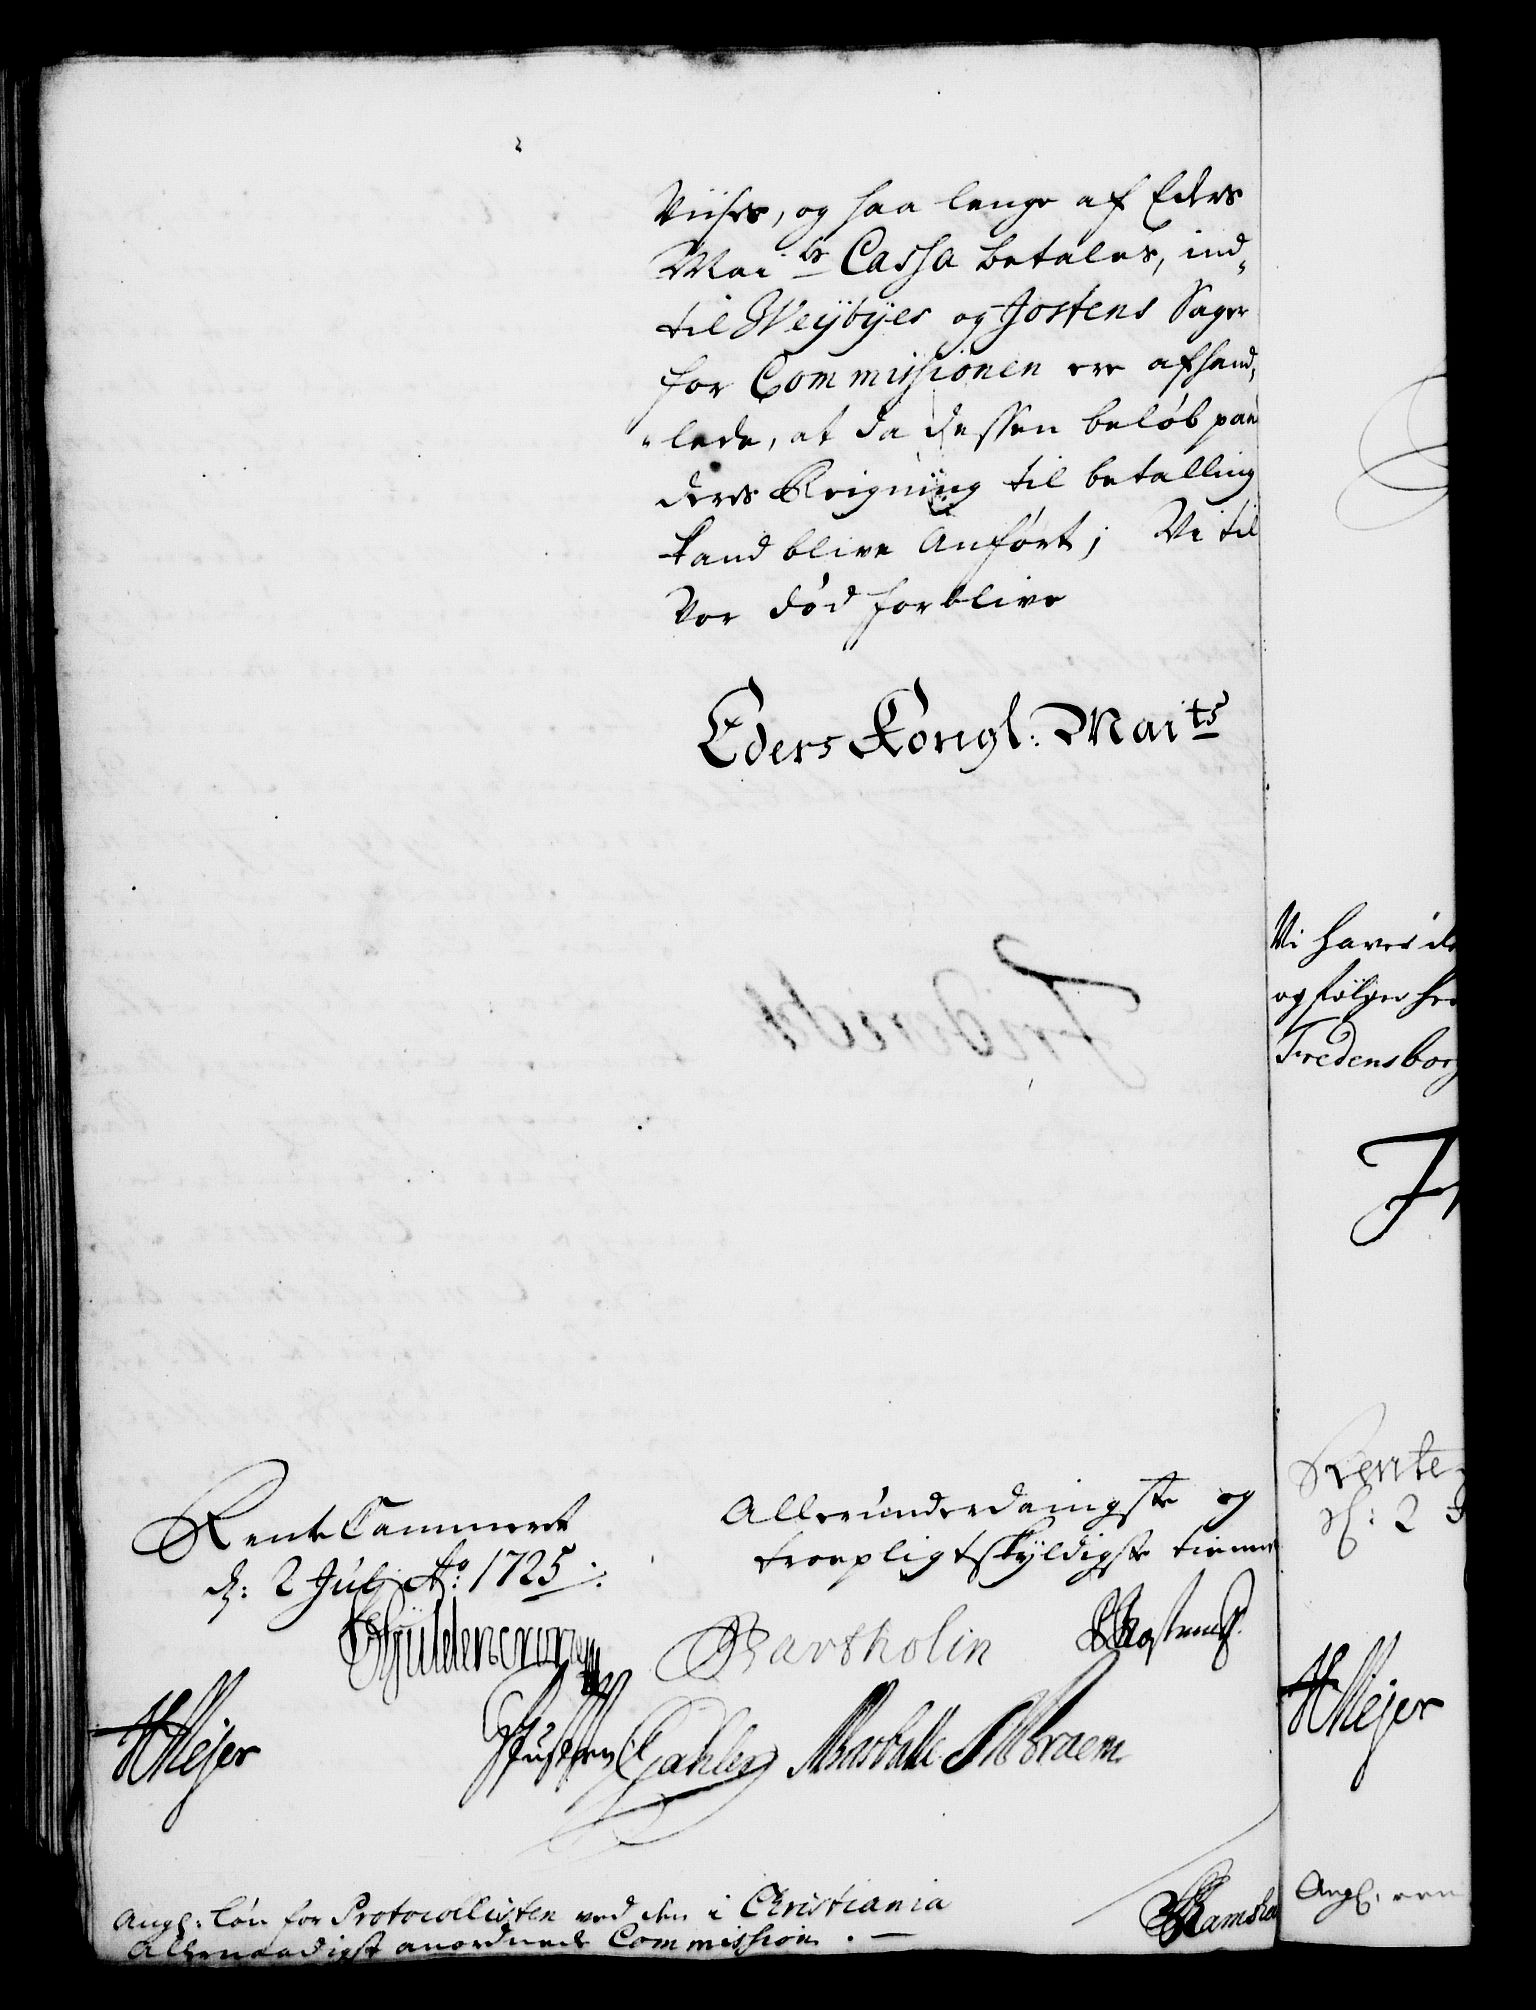 Viises, og saa lenge af Eders
Mai ts Cassa betales, ind„
til Weÿbÿes og Jostens Sager
for Commissionen ere afhand„
„lede, at da dessen beløb paa
deres Reigning til betalling
kand blive Anført; Vi til
Vor død forblive
Eders Kongl: Maits
Friderich
RenteCammeret
d: 2 Julj Ao: 1725.
Allerunderdanigste og
troepligtskyldigste tienere
Güldencrone
Bartholin
HMejer
Gahler
Braem
Ang: løn for Protocollisten ved den i Christiania
Allernaadigst anordnede Commission. —
Ramshart
Vi haver d
og følger he
Fredensborg
Fr
Rente
d: 2 J
HMejer
Ang: